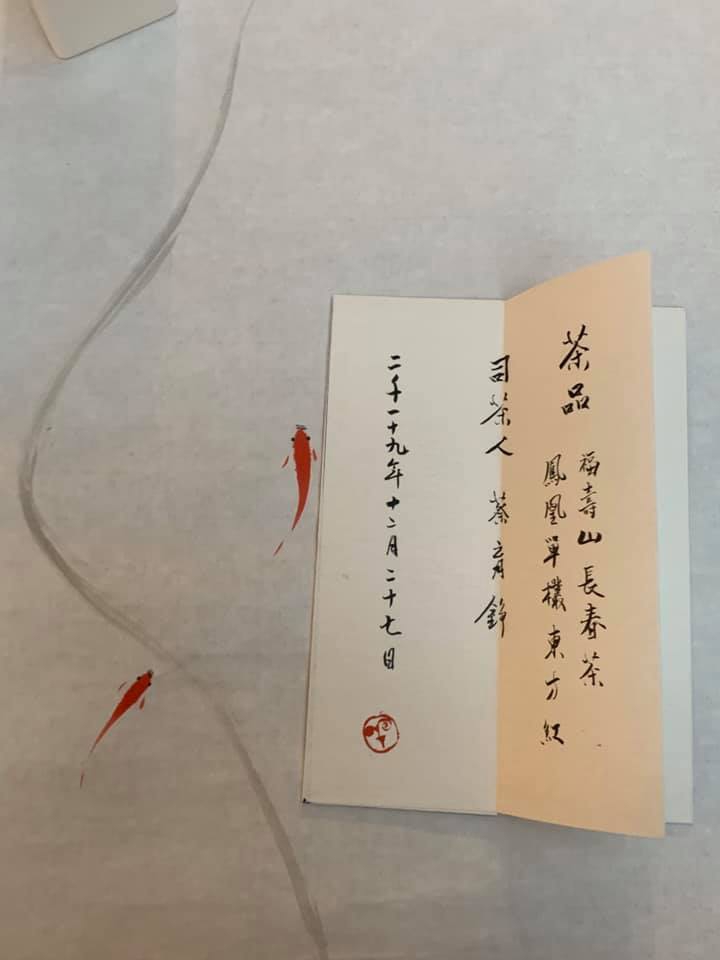 茶品
福壽山長春茶
鳳凰單欉東方紅
司茶人 蔡
二千一十九年十二月二十七日